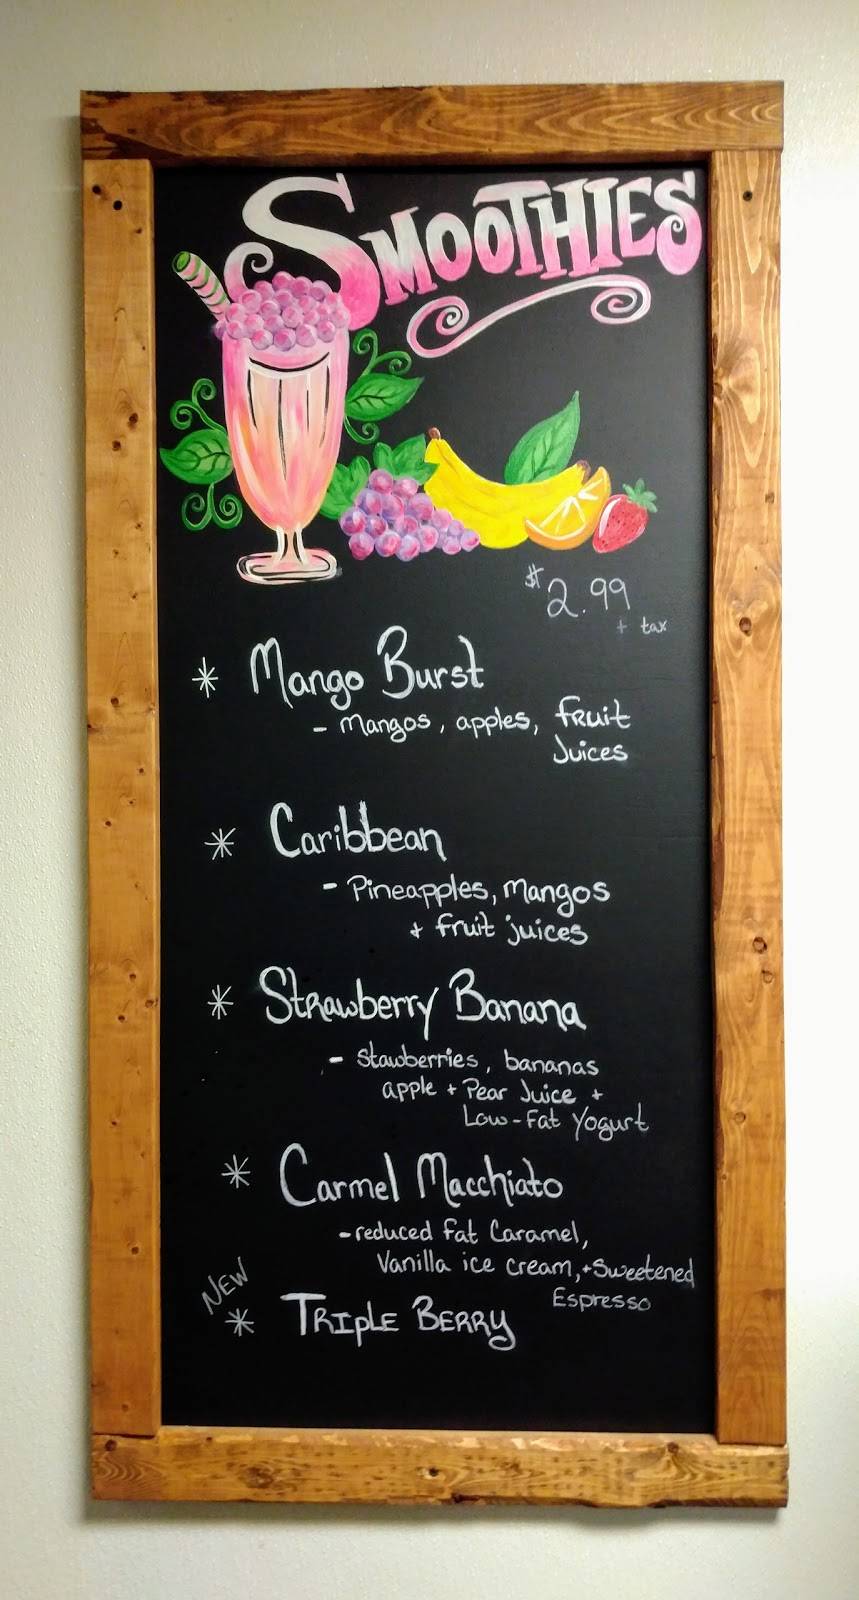 SMOOTHIES
$2.99
+ tax
* Mango Burst
- Mangos, apples, fruit
Juices
* Caribbean
- Pineapples, mangos
+ fruit juices
* Strawberry Banana
- Stawberries, bananas
apple + Pear Juice +
Low-Fat Yogurt
* Carmel Macchiato
- reduced fat Caramel,
Vanilla ice cream, + Sweetened
Espresso
NEW
* TRIPLE BERRY